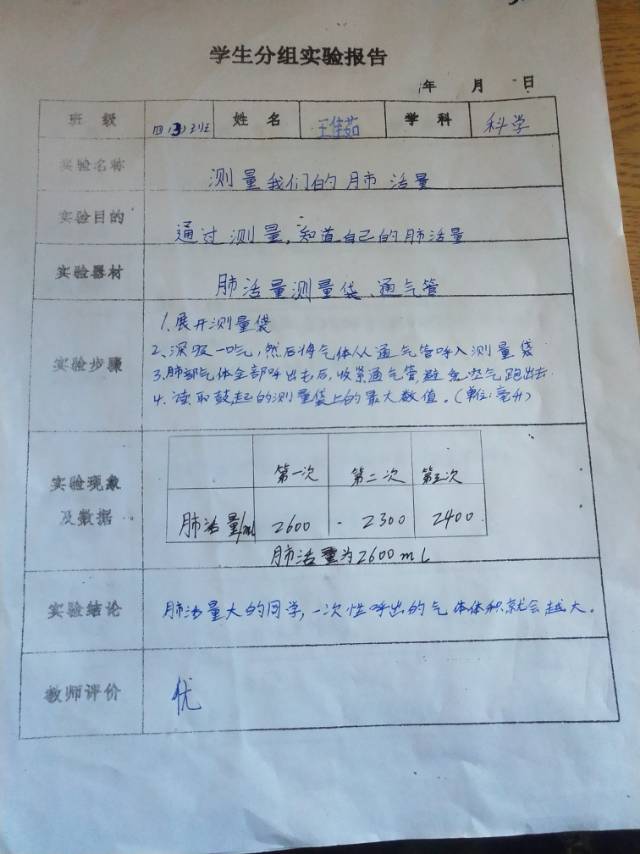 学生分组实验报告
年 月 日
班 级 四(3)班 姓 名 王佳茹 学 科 科学
实验名称 测量我们的肺活量
实验目的 通过测量,知道自己的肺活量
实验器材 肺活量测量袋、通气管
实验步骤
1、展开测量袋
2、深吸一口气,然后将气体从通气管呼入测量袋
3、肺部气体全部呼出去后,收紧通气管,避免空气跑出去
4、读取鼓起的测量袋上的最大数值。(单位:毫升)
实验现象及数据
第一次 第二次 第三次
肺活量/ml 2600 2300 2400
肺活量为2600mL
实验结论 肺活量大的同学,一次性呼出的气体体积就会越大。
教师评价 优